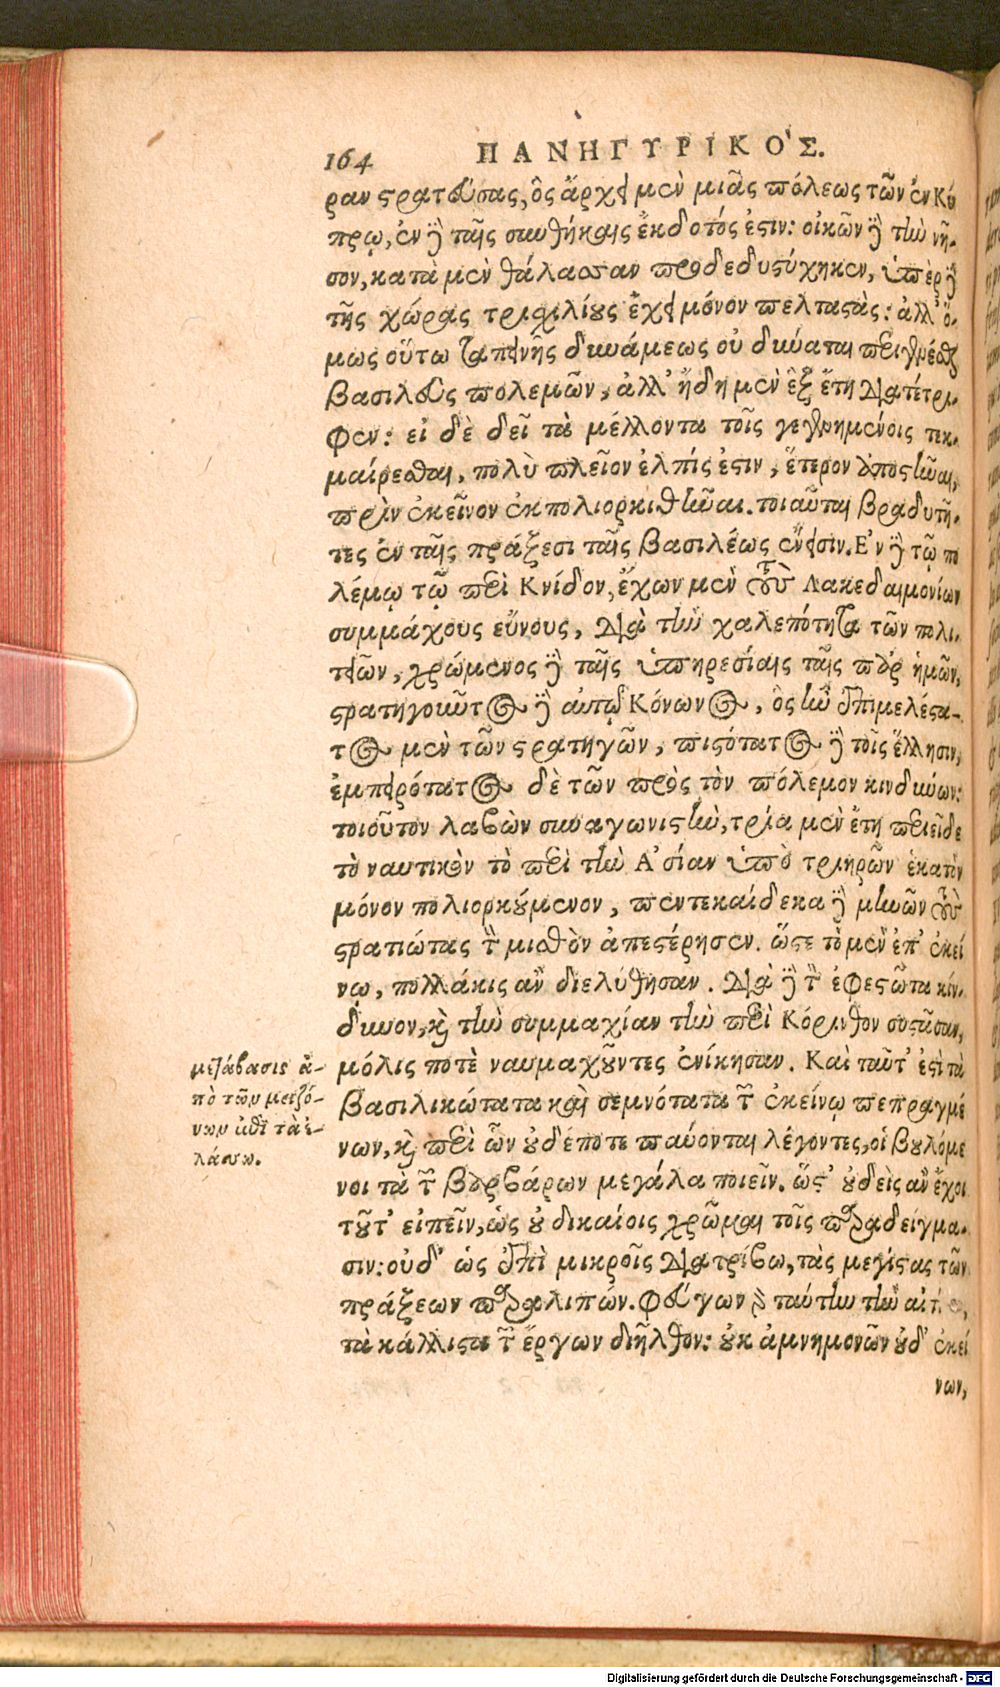 164 ΠΑΝΗΓΥΡΙΚΟ'Σ.
ραν στρατεύσας, ὃς ἄρχει μὲν μιᾶς πόλεως τῶν ἐν Κύ
πρῳ, ἐν δὲ ταῖς συνθήκαις ἔκδοτός ἐστιν: οἰκῶν δὲ τὴν νῆ-
σον, κατὰ μὲν θάλασσαν προδεδυστύχηκεν, ὑπὲρ δὲ
τῆς χώρας τρισχιλίους ἔχει μόνον πελταστάς: ἀλλ' ὅ-
μως οὕτω ταπεινῆς δυνάμεως οὐ δύναται περιγενέσθαι
βασιλεὺς πολεμῶν, ἀλλ' ἤδη μὲν ἓξ ἔτη διατέτρι-
φεν: εἰ δὲ δεῖ τὰ μέλλοντα τοῖς γεγενημένοις τεκ-
μαίρεσθαι, πολὺ πλεῖον ἐλπίς ἐστιν, ἕτερον ἀποστῆναι,
πρὶν ἐκεῖνον ἐκπολιορκηθῆναι. τοιαῦται βραδυτῆ-
τες ἐν ταῖς πράξεσι ταῖς βασιλέως ἔνεισιν. Ε'ν δὲ τῷ πο
λέμῳ τῷ περὶ Κνίδον, ἔχων μὲν τοὺς Λακεδαιμονίων
συμμάχους εὔνους, διὰ τὴν χαλεπότητα τῶν πολι-
τειῶν, χρώμενος δὲ ταῖς ὑπηρεσίαις ταῖς παρ' ἡμῶν,
στρατηγοῦντος δὲ αὐτῷ Κόνωνος, ὃς ἦν ἐπιμελέστα-
τος μὲν τῶν στρατηγῶν, πιστότατος δὲ τοῖς ἕλλησιν,
ἐμπειρότατος δὲ τῶν πρὸς τὸν πόλεμον κινδύνων:
τοιοῦτον λαβὼν συναγωνιστὴν, τρία μὲν ἔτη περιεῖδε
τὸ ναυτικὸν τὸ περὶ τὴν Α'σίαν ὑπὸ τριηρῶν ἑκατὸν
μόνον πολιορκούμενον, πεντεκαίδεκα δὲ μηνῶν τοὺς
στρατιώτας τὸν μισθὸν ἀπεστέρησεν. ὥστε τὸ μὲν ἐπ' ἐκεί
νῳ, πολλάκις ἂν διελύθησαν. διὰ δὲ τὸν ἐφεστῶτα κίν-
δυνον, καὶ τὴν συμμαχίαν τὴν περὶ Κόρινθον συστᾶσαν,
μόλις ποτὲ ναυμαχοῦντες ἐνίκησαν. Καὶ ταῦτ' ἐστὶ τὰ
βασιλικώτατα καὶ σεμνότατα τῶν ἐκείνῳ πεπραγμέ
νων, καὶ περὶ ὧν οὐδέποτε παύονται λέγοντες, οἱ βουλόμε
νοι τὰ τῶν βαρβάρων μεγάλα ποιεῖν. ὥστ' οὐδεὶς ἂν ἔχοι
τοῦτ' εἰπεῖν, ὡς οὐ δικαίοις χρῶμαι τοῖς παραδείγμα-
σιν: οὐδ' ὡς ἐπὶ μικροῖς διατρίβω, τὰς μεγίστας τῶν
πράξεων παραλιπών. φεύγων γὰρ ταύτην τὴν αἰτίαν,
τὰ κάλλιστα τῶν ἔργων διῆλθον: οὐκ ἀμνημονῶν οὐδ' ἐκεί
νων,
μετάβασις ἀ-
πὸ τῶν μειζό-
νων ἐπὶ τὰ ἐ-
λάσσω.
Digitalisierung gefördert durch die Deutsche Forschungsgemeinschaft - DFG